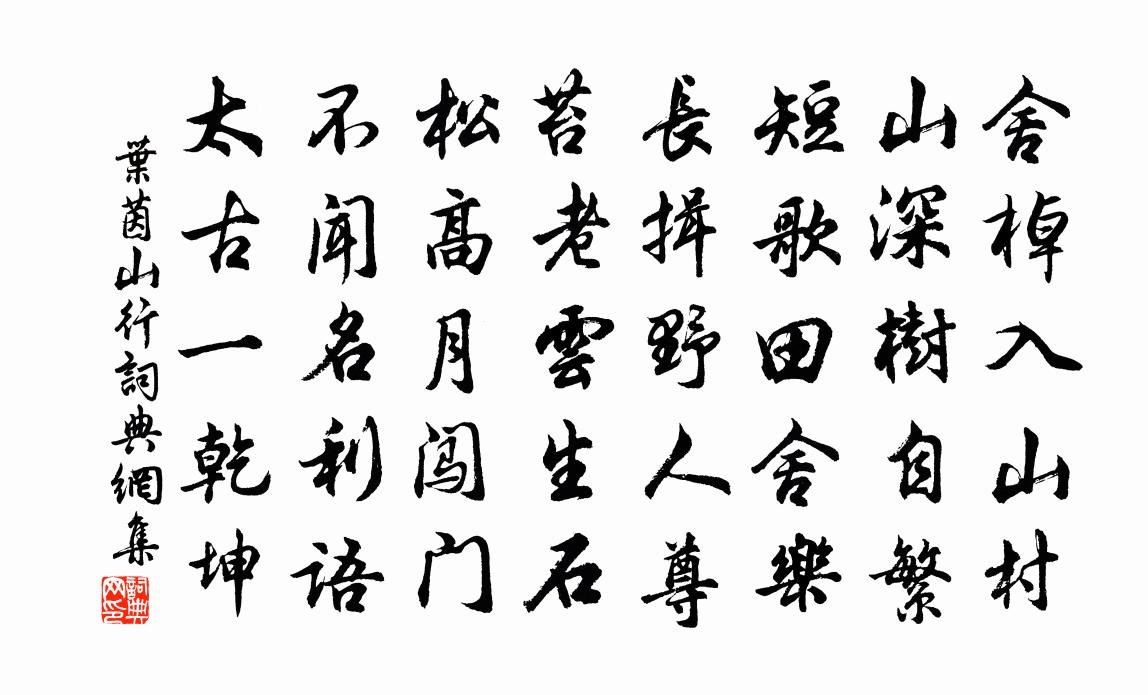 舍棹入山村
山深樹自繁
短歌田舍樂
長揖野人尊
苔老雲生石
松高月闯门
不聞名利語
太古一乾坤
葉茵山行詞典網集
詞典网印